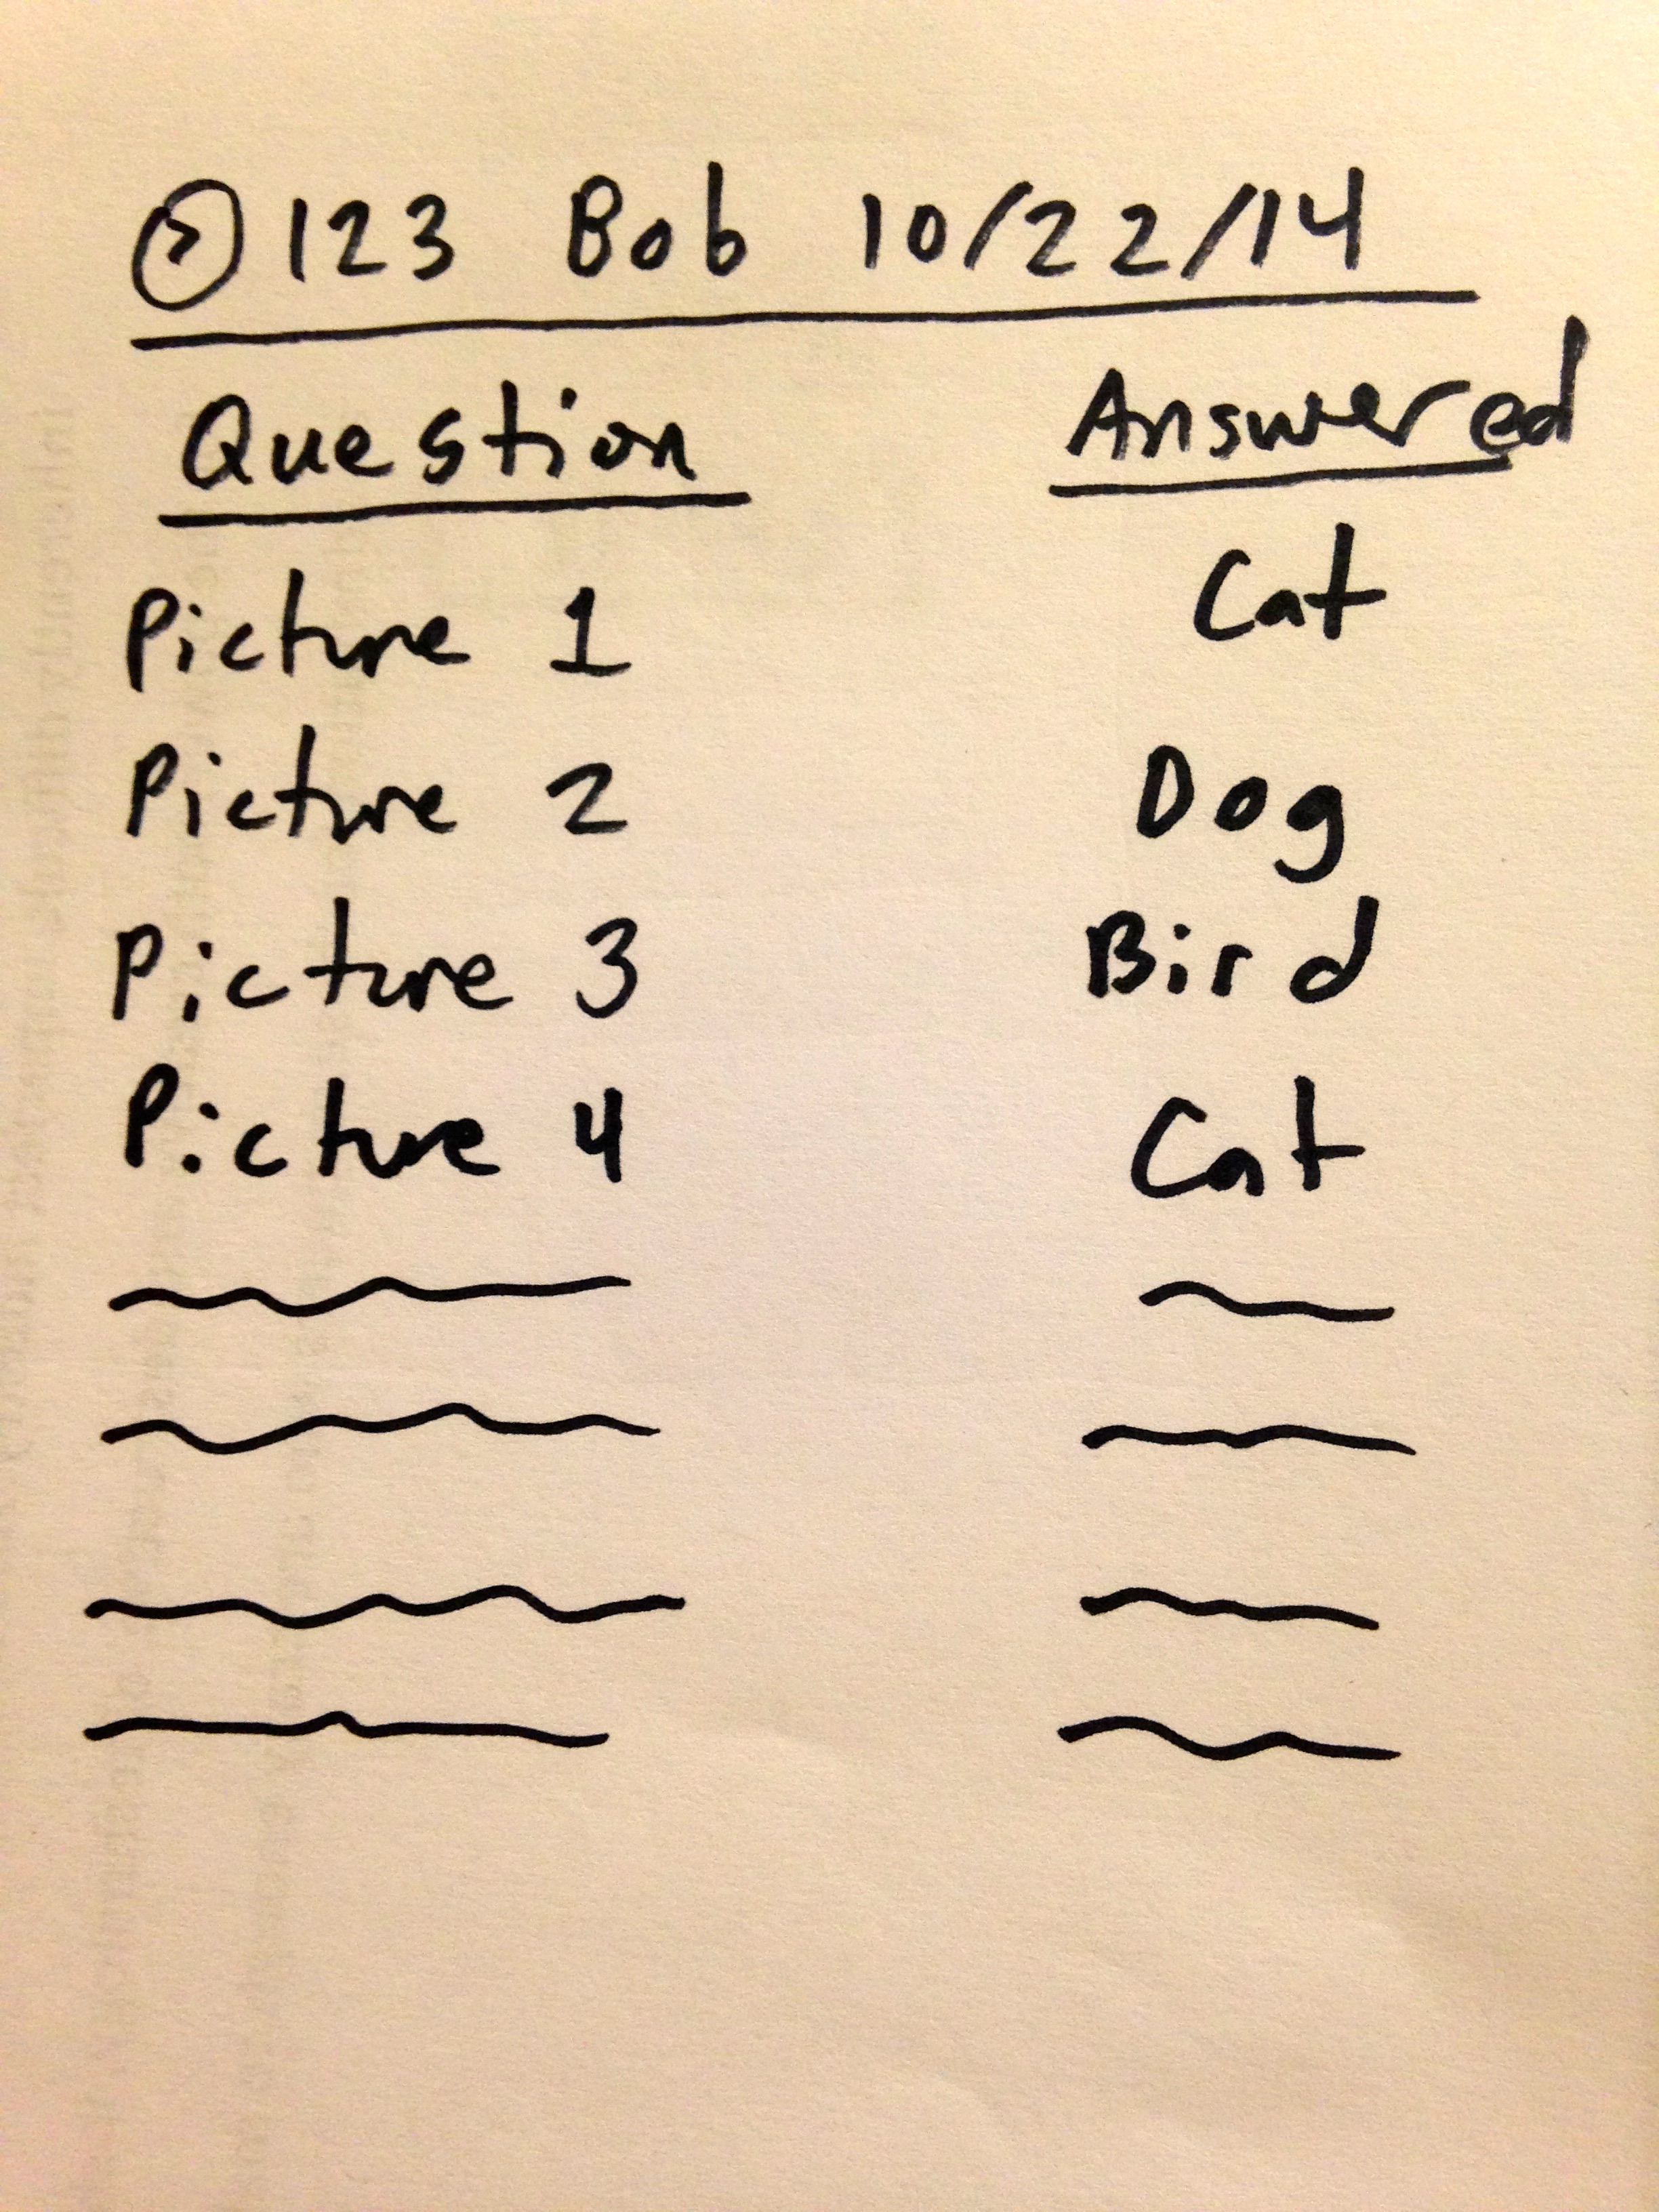 123 Bob 10/22/14
Question Answered
Picture 1 Cat
Picture 2 Dog
Picture 3 Bird
Picture 4 Cat